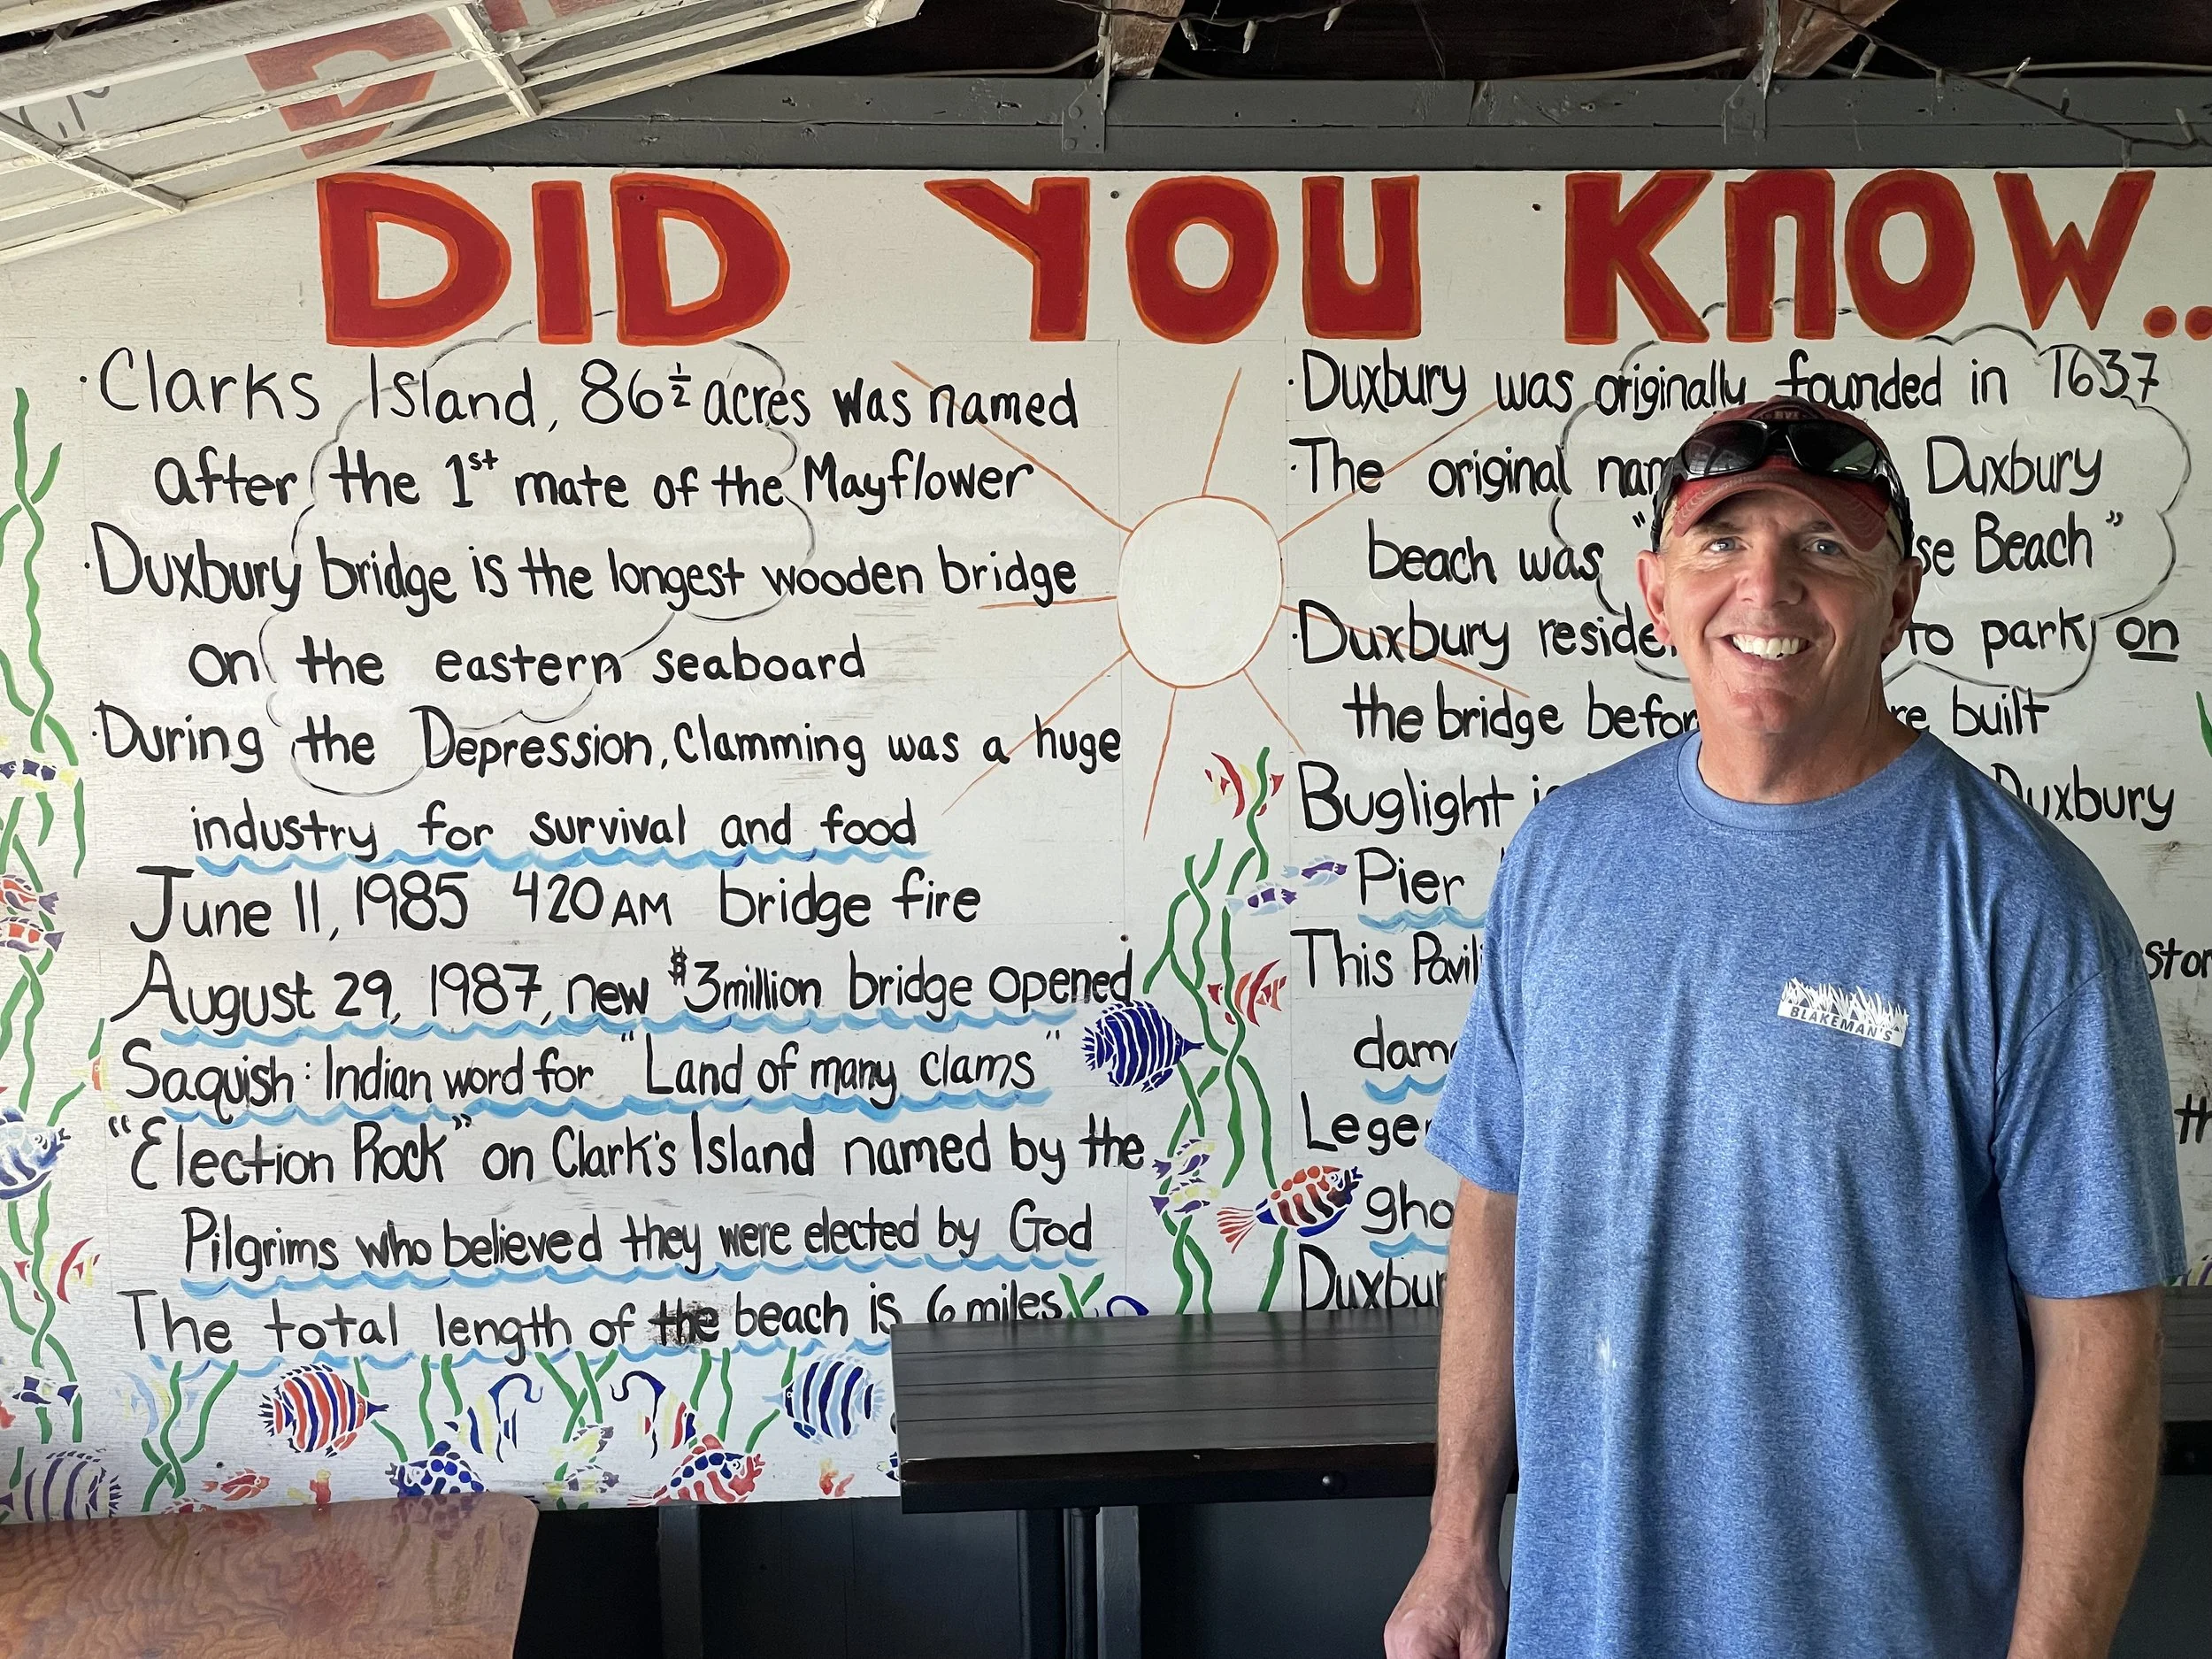 DID YOU KNOW..
·Clarks Island, 86½ acres was named
after the 1st mate of the Mayflower
·Duxbury bridge is the longest wooden bridge
on the eastern seaboard
·During the Depression, Clamming was a huge
industry for survival and food
June 11, 1985 420AM bridge fire
August 29, 1987, new $3million bridge opened
Saquish: Indian word for "Land of many clams"
"Election Rock" on Clark's Island named by the
Pilgrims who believed they were elected by God
The total length of the beach is 6 miles
·Duxbury was originally founded in 1637
·The original Duxbury
beach was " Beach"
·Duxbury to park on
the bridge built
Buglight Duxbury
Pier
This
BLAKEMAN'S